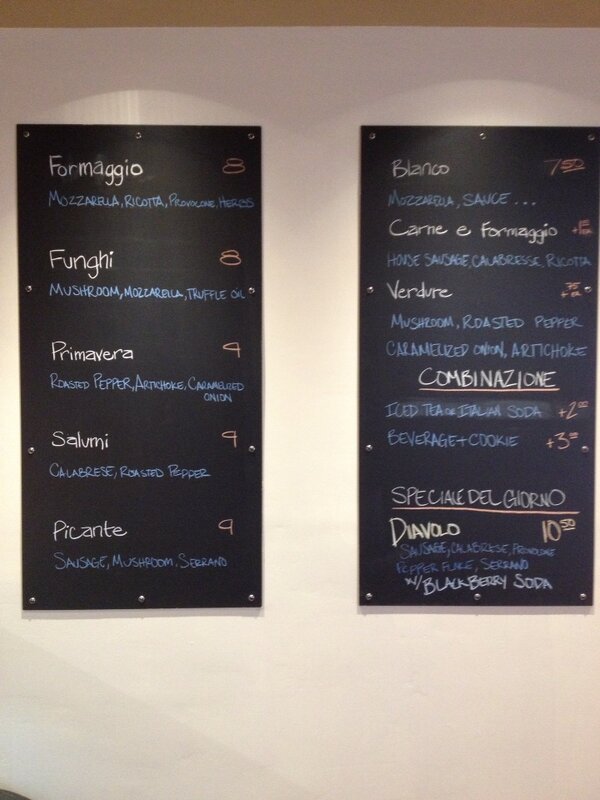 Formaggio 8
Mozzarella, Ricotta, Provolone, Herbs
Funghi 8
Mushroom, Mozzarella, Truffle Oil
Primavera 9
Roasted Pepper, Artichoke, Caramelized
Onion
Salumi 9
Calabrese, Roasted Pepper
Picante 9
Sausage, Mushroom, Serrano
Blanco 7.50
Mozzarella, Sauce...
Carne e Formaggio
House Sausage, Calabresse, Ricotta
Verdure 75 + ea
Mushroom, Roasted Pepper
Caramelized Onion, Artichoke
COMBINAZIONE
Iced Tea or Italian Soda +2.00
Beverage + Cookie +3.00
SPECIALE DEL GIORNO
DIAVOLO 10.50
Sausage, Calabrese, Provolone
Pepper Flake, Serrano
w/ Blackberry Soda